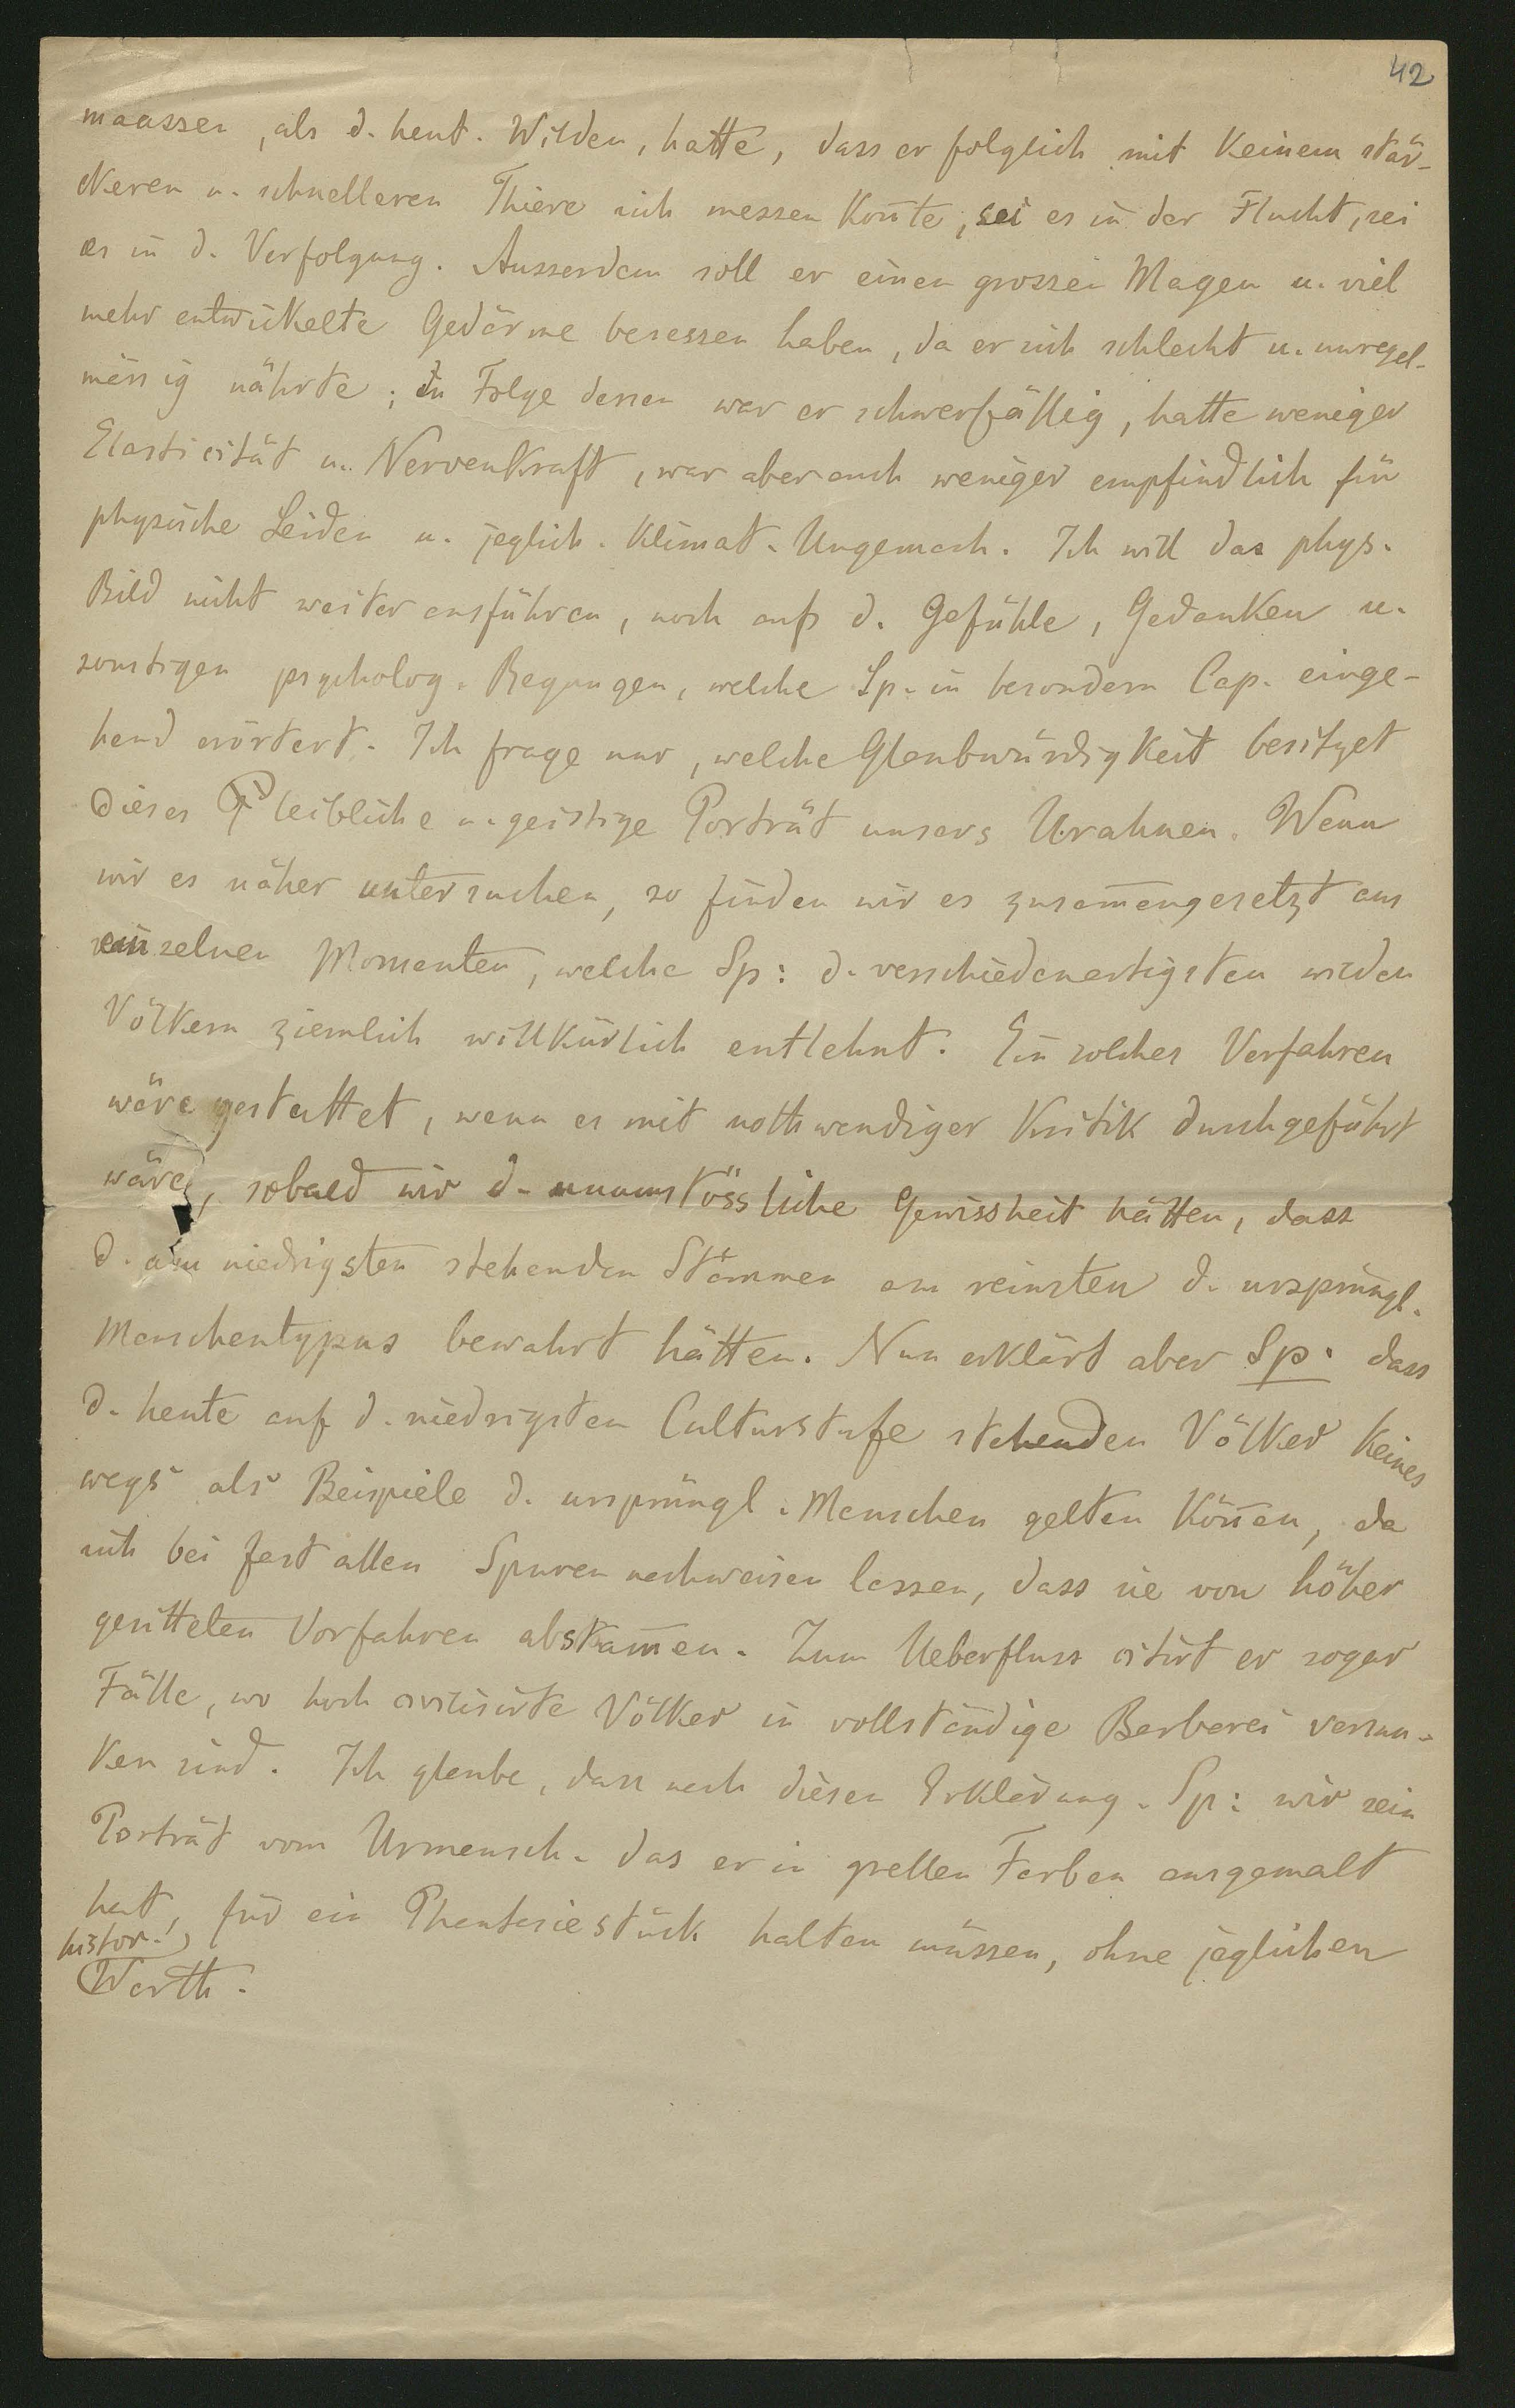 42
maassen, als d. heut. Wilden, hatte, dass er folglich mit keinem stär-
keren u. schnelleren Thiere sich messen kon̄te, sei es in der Flucht, sei
es in d. Verfolgung. Ausserdem soll er einen grossen Magen u. viel
mehr entwickelte Gedärme besessen haben, da er sich schlecht u. unregel-
mässig nährte; in Folge dessen war er schwerfällig, hatte weniger
Elasticität u. Nervenkraft, war aber auch weniger empfindlich für
physische Leiden u. jeglich. klimat. Ungemach. Ich will das phys.
Bild nicht weiter ausführen, noch auf d. Gefühle, Gedanken u.
sonstigen psycholog. Regungen, welche Sp. in besondern Cap. einge-
hend erörtert. Ich frage nur, welche Glaubwürdigkeit besitzet
dieses leibliche u. geistige Porträt unsers Urahnen. Wenn
wir es näher untersuchen, so finden wir es zusam̄engesetzt aus
einzelnen Momenten, welche Sp: d. verschiedenartigsten wilden
Völkern ziemlich willkürlich entlehnt. Ein solches Verfahren
wäre gestattet, wenn es mit nothwendiger Kritik durchgeführt
wäre, sobald wir d. unumstössliche Gewissheit hätten, dass
d. am niedrigsten stehenden Stämmen am reinsten d. ursprüngl.
Menschentypus bewahrt hätten. Nun erklärt aber Sp. dass
d. heute auf d. niedrigsten Culturstufe stehenden Völker keines
wegs als Beispiele d. ursprüngl. Menschen gelten kön̄en, da
sich bei fast allen Spuren nachweisen lassen, dass sie von höher
gesitteten Vorfahren abstam̄en. Zum Ueberfluss citirt er sogar
Fälle, wo hoch civilisirte Völker in vollständige Barbarei versun-
ken sind. Ich glaube, dass nach diesen Erklärung. Sp: wir sein
Porträt vom Urmensch. das er in grellen Farben ausgemalt
hat, für ein Phantasiestück halten müssen, ohne jeglichen
histor.
Werth.